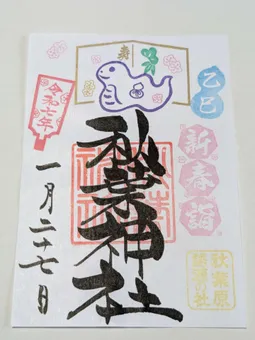 寿
乙巳
新春詣
令和七年
秋葉神社
一月二十七日
秋葉原